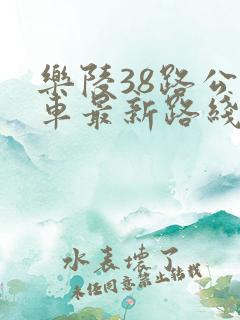 樂陵38路公
車最新路綫
水表壞了
未经同意禁止转载